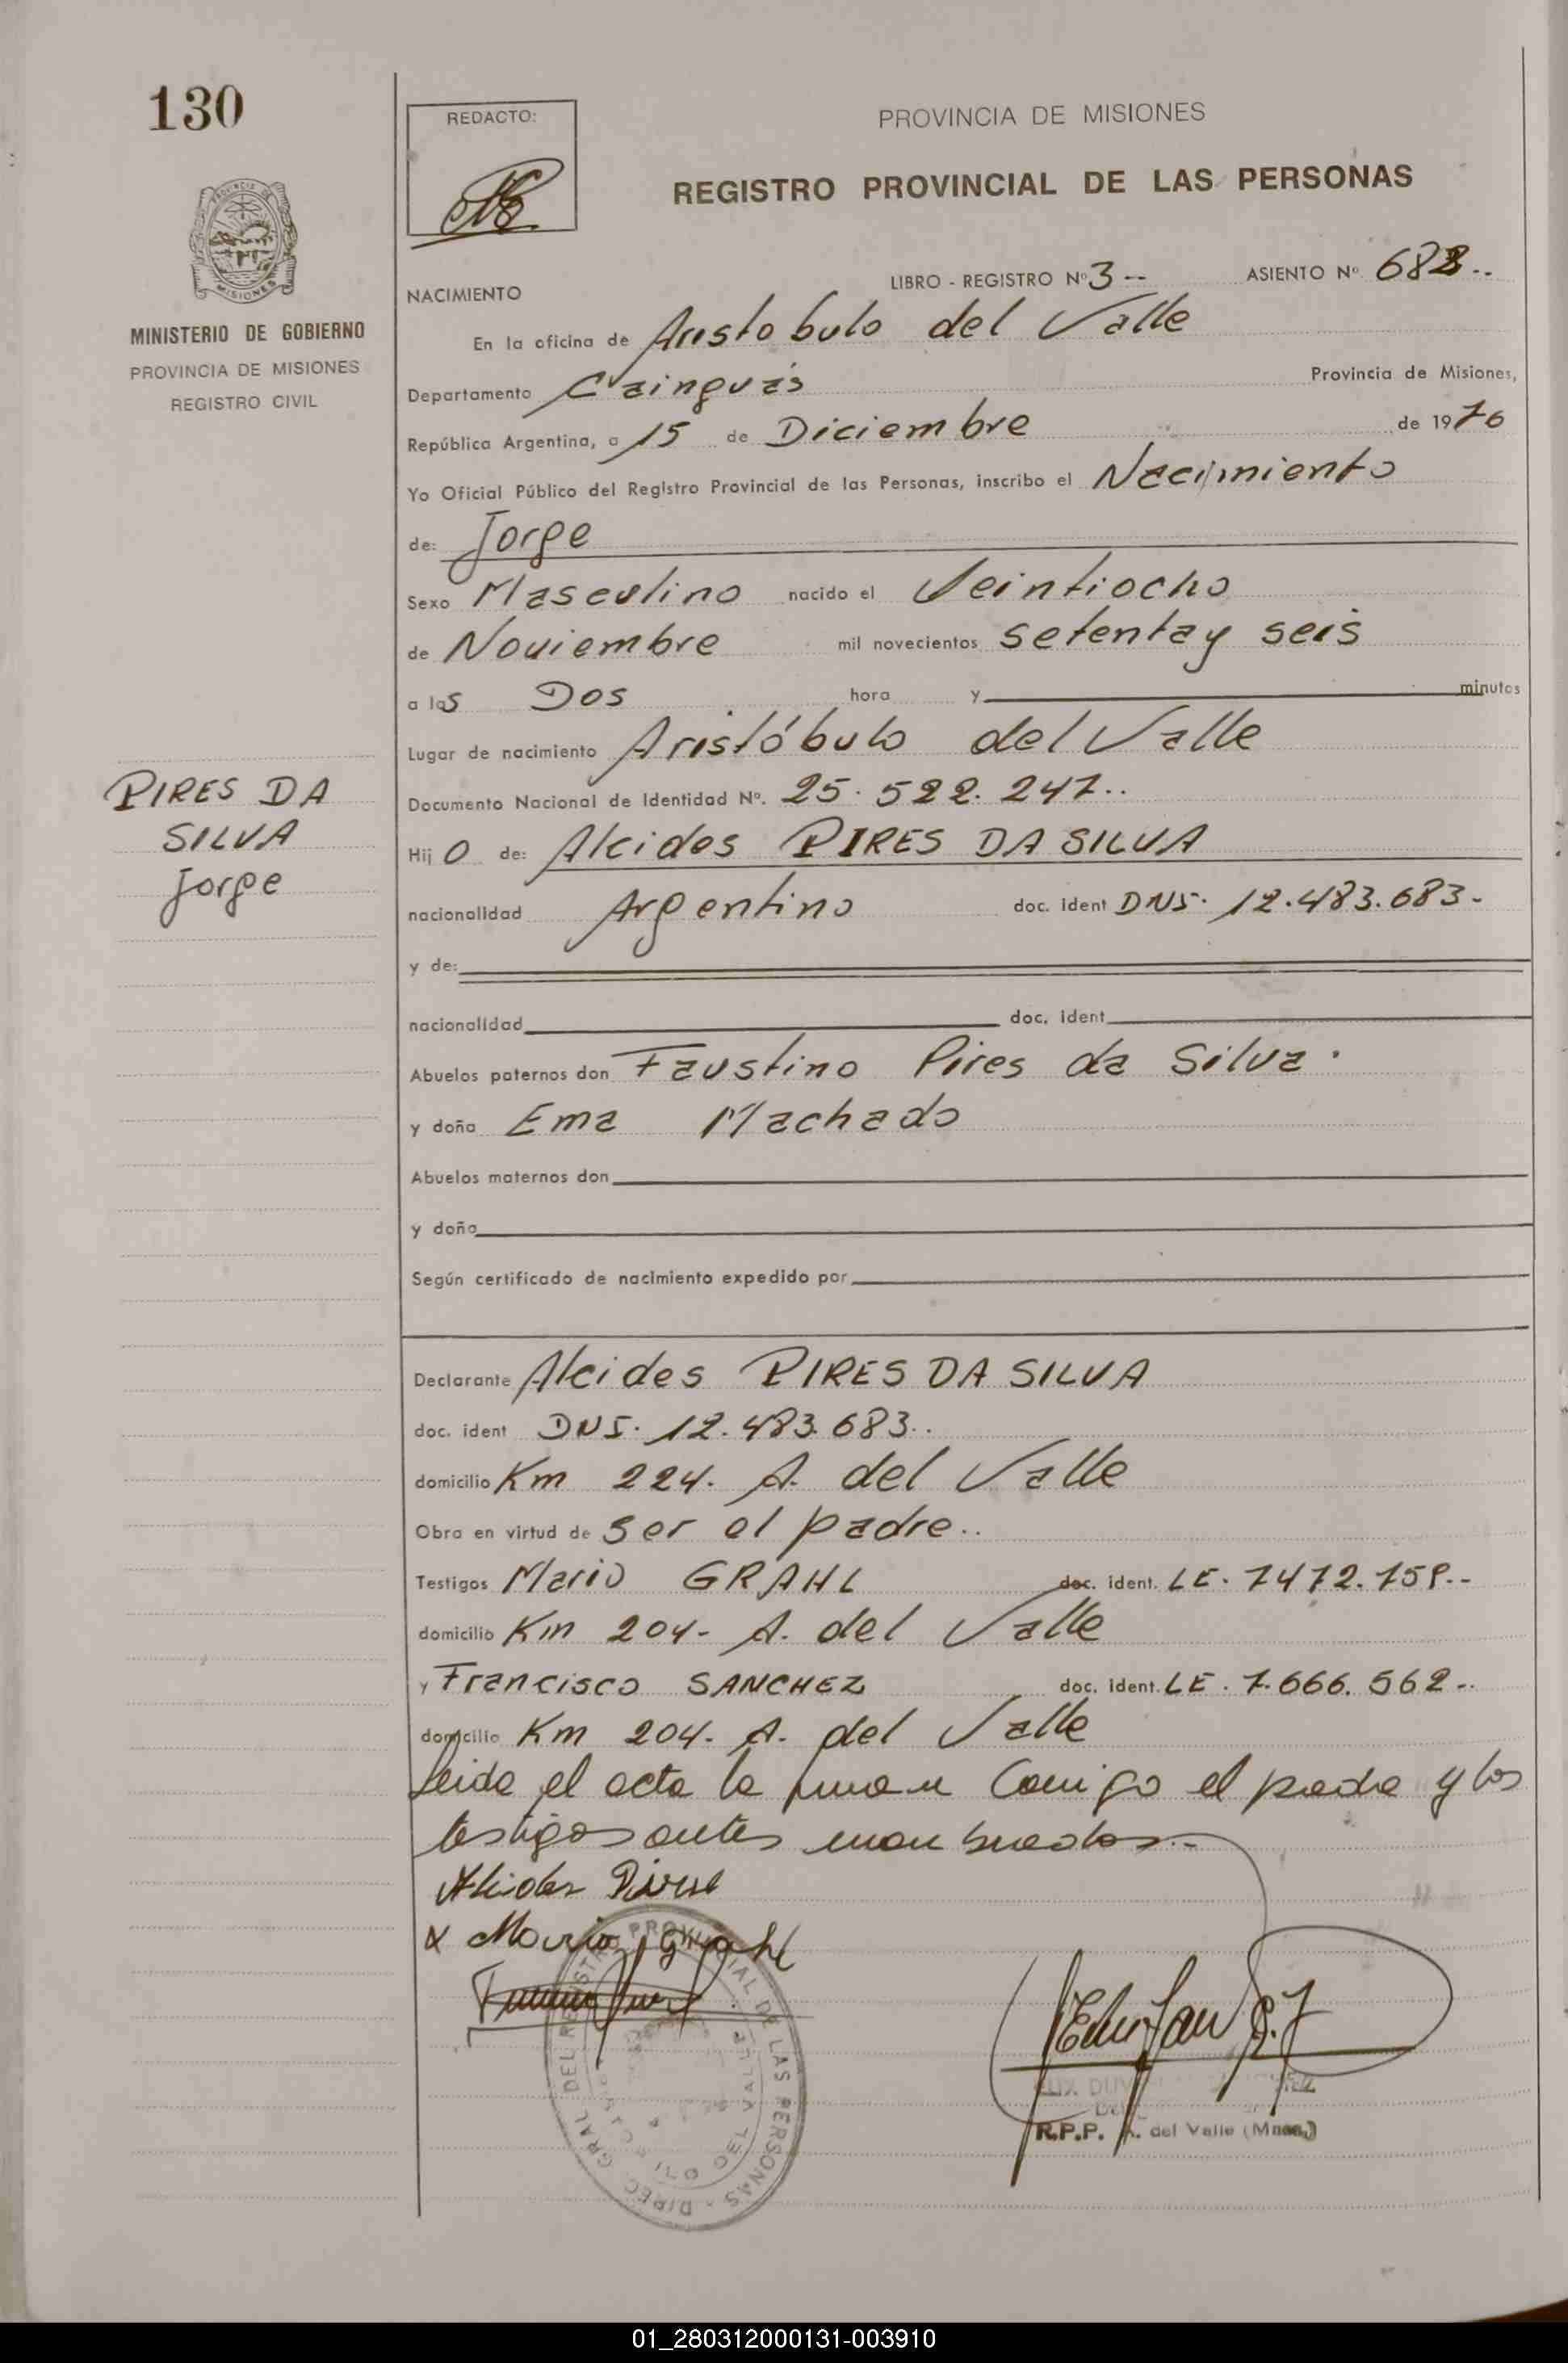 130
REDACTO:
PROVINCIA DE MISIONES
REGISTRO PROVINCIAL DE LAS PERSONAS
MINISTERIO DE GOBIERNO
PROVINCIA DE MISIONES
REGISTRO CIVIL
LIBRO - REGISTRO Nº 3 -- ASIENTO Nº 688..
NACIMIENTO
En la oficina de Aristobulo del Valle
Departamento Cainguás Provincia de Misiones,
República Argentina, a 15 de Diciembre de 1976
Yo Oficial Público del Registro Provincial de las Personas, inscribo el Nacimiento
de: Jorge
Sexo Masculino nacido el Veintiocho
de Noviembre mil novecientos setenta y seis
a las Dos hora y minutos
Lugar de nacimiento Aristóbulo del Valle
Documento Nacional de Identidad Nº. 25.522.247..
PIRES DA
SILVA
Jorge
Hijo de: Alcides PIRES DA SILVA
nacionalidad Argentino doc. ident DNI. 12.483.683.-
y de:
nacionalidad doc. ident
Abuelos paternos don Faustino Pires da Silva.
y doña Ema Machado
Abuelos maternos don
y doña
Según certificado de nacimiento expedido por
Declarante Alcides PIRES DA SILVA
doc. ident DNI. 12.483.683..
domicilio Km 224. A. del Valle
Obra en virtud de ser el padre..
Testigos Mario GRAHL doc. ident. LE. 7472.159.--
domicilio Km 204- A. del Valle
y Francisco SANCHEZ doc. ident. LE. 7.666.562--
domicilio Km 204. A. del Valle
Leida el acta la firman Conmigo el padre y los
testigos antes mencionados.--
Alcides Pires
x Mario Grahl
REGISTRO PROVINCIAL DE LAS PERSONAS - DIREC. GRAL. DEL
DEL VALLE
R.P.P. A. del Valle (Mnes.)
01_280312000131-003910